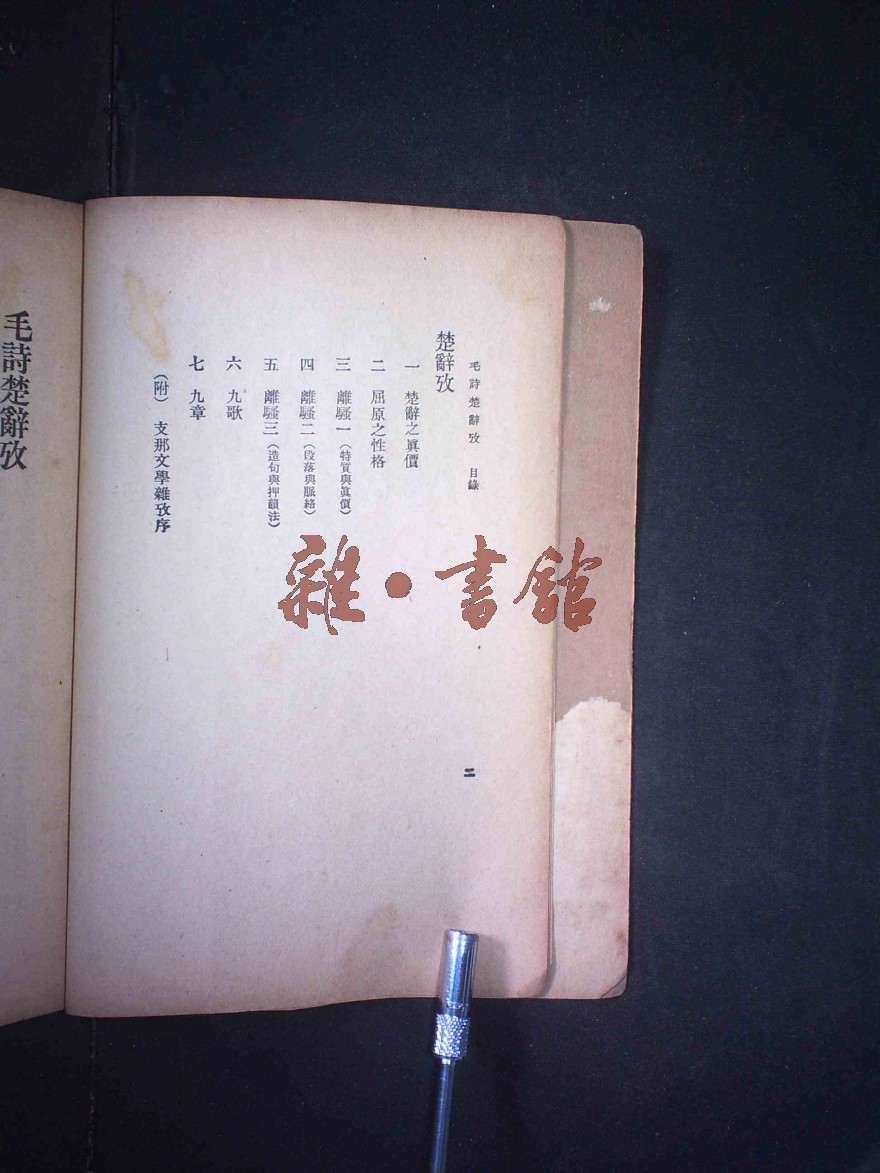 毛詩楚辭攷　目錄
楚辭攷
一　楚辭之眞價
二　屈原之性格
三　離騷一（特質與眞價）
四　離騷二（段落與脈絡）
五　離騷三（造句與押韻法）
六　九歌
七　九章
（附）　支那文學雜攷序
二
毛詩楚辭攷
雜·書館